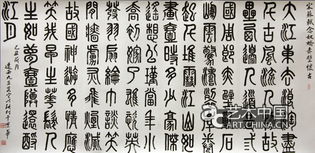 宋蘇軾念奴嬌赤壁懷古
大江東去浪淘盡
千古風流人物故
壘西邊人道是三
國周郎赤壁亂石
驚濤岸捲
起千堆雪江山如
畫一時多少豪傑
遙想公瑾當年小
喬初嫁了雄姿英
發羽扇綸巾談笑
間檣櫓灰飛煙滅
故國神遊多情應
笑我早生華髮人
生如夢一尊還酹
江月
艺术中国